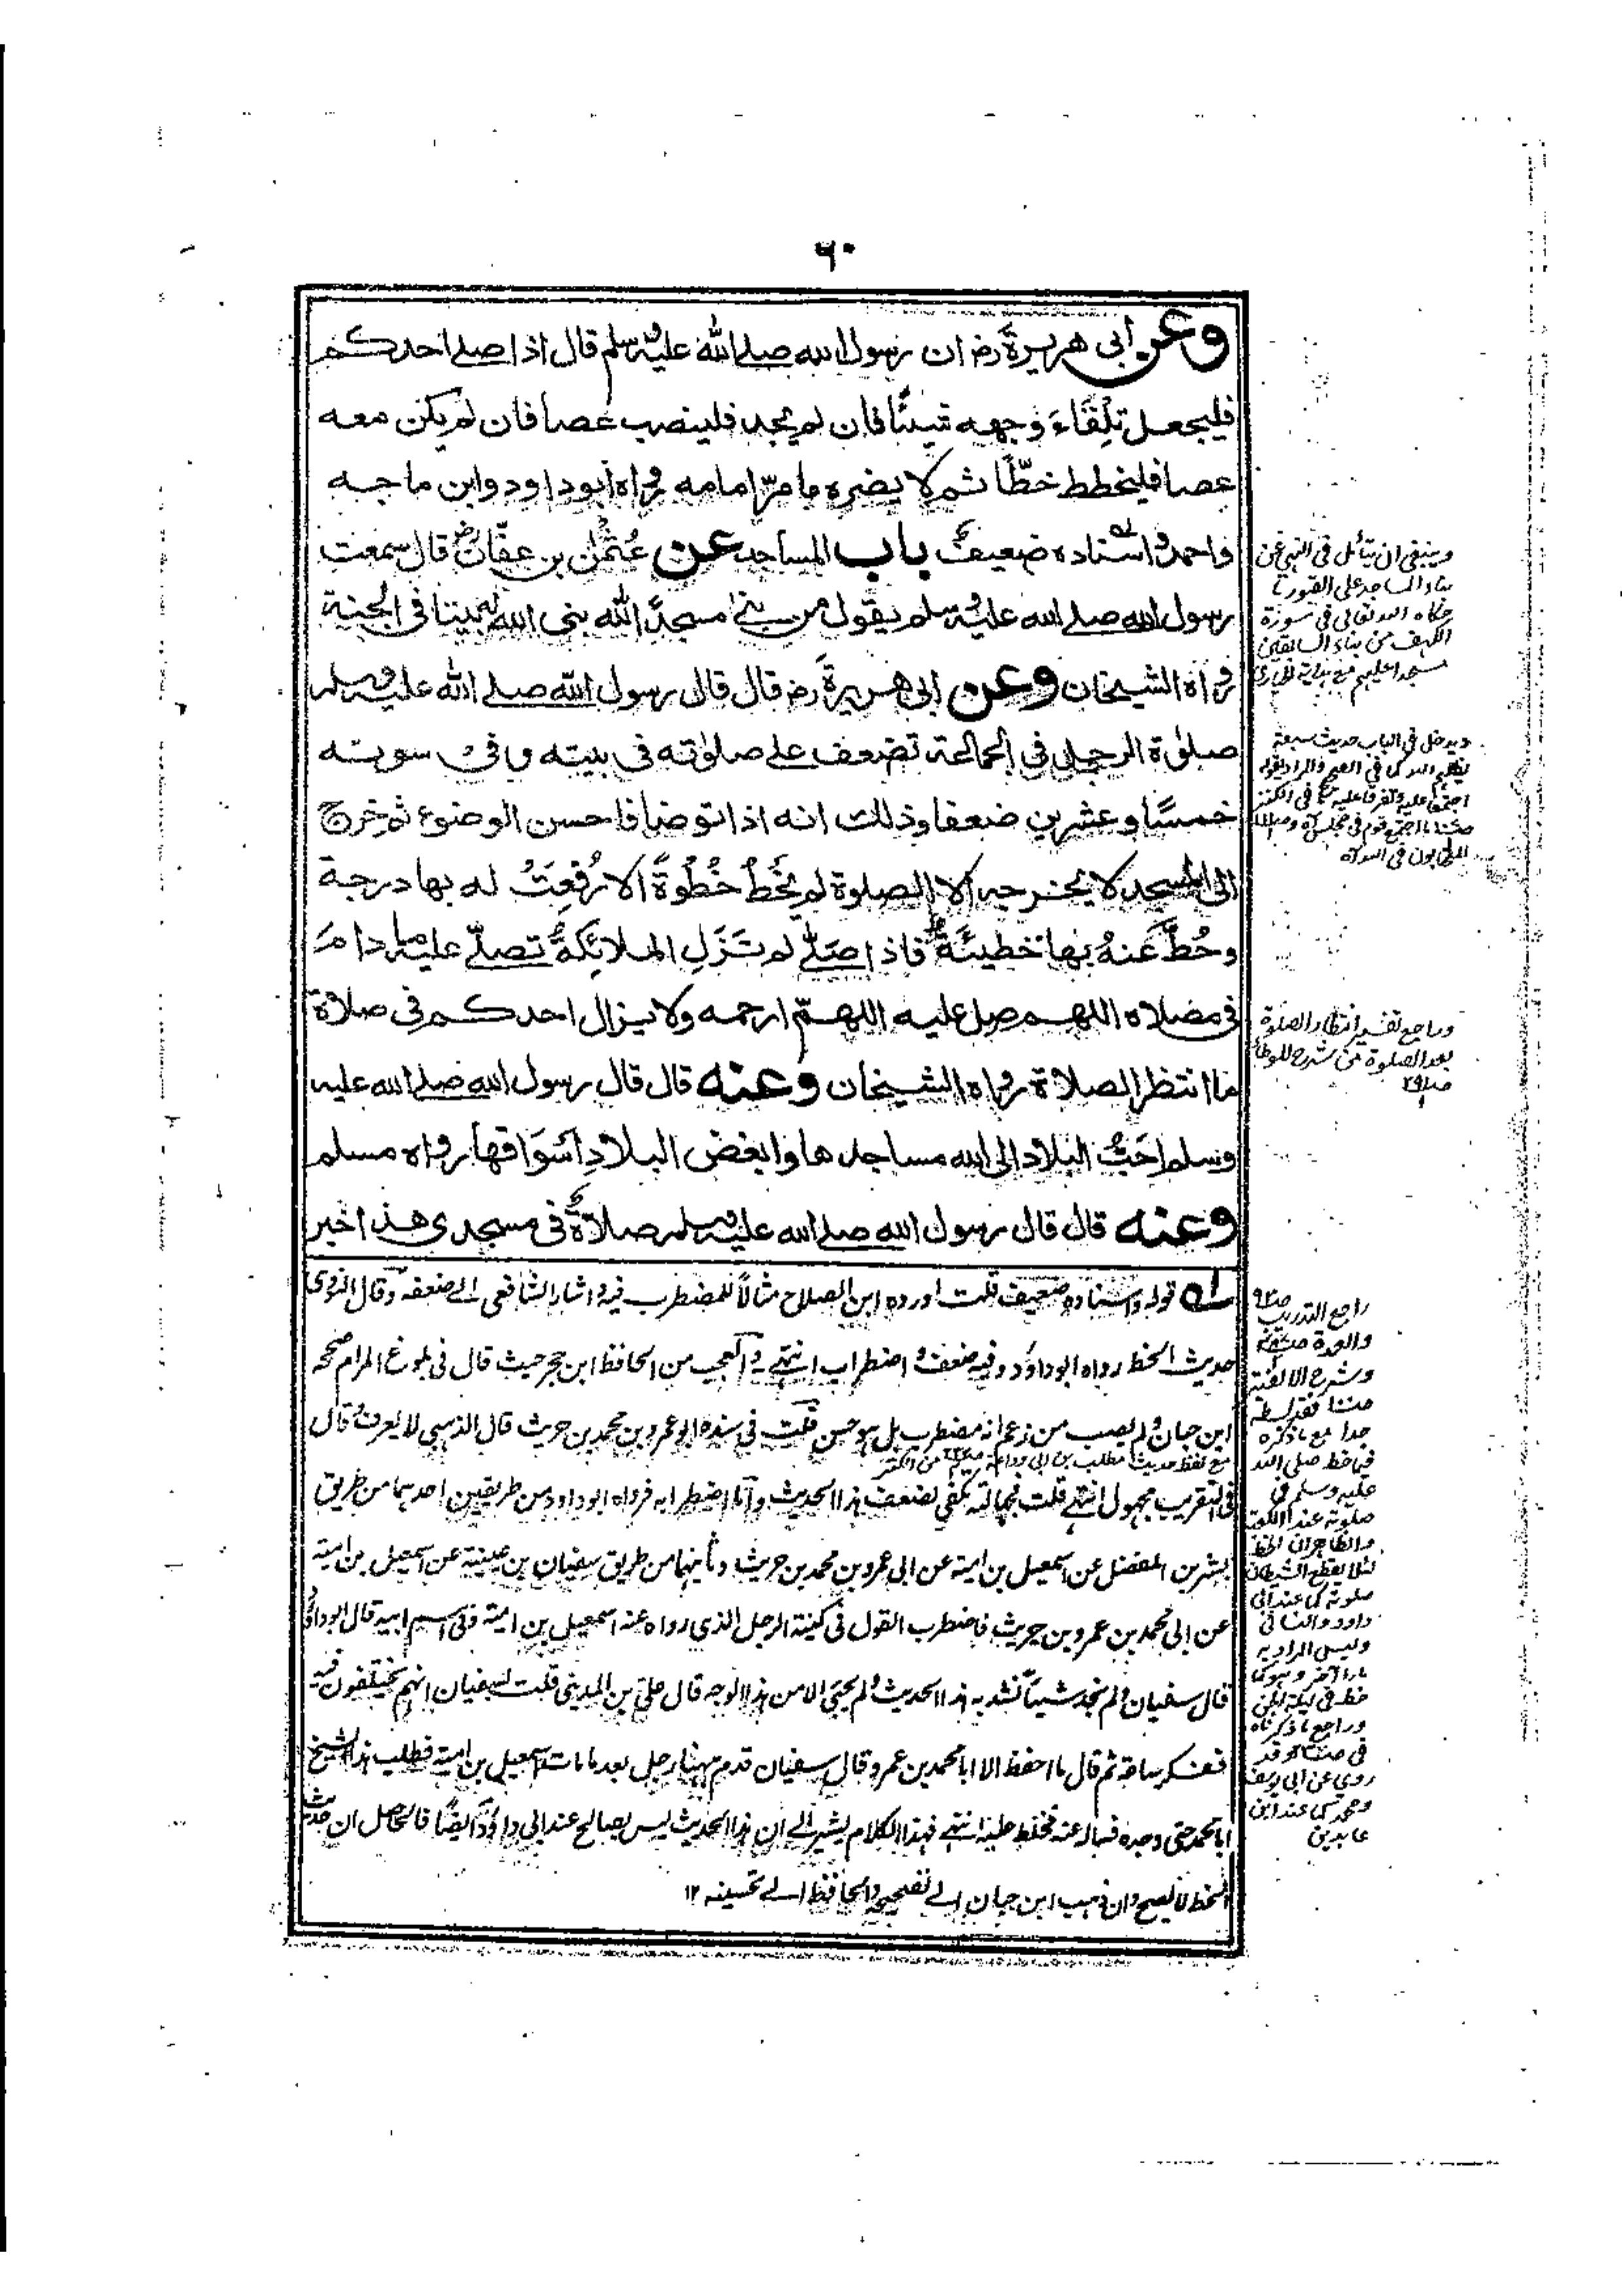 ٦٠
وعن أبى هريرةَ رض ان رسول الله صلے الله عليه وسلم قال اذا صلے احدكم
فليجعل تِلقَاءَ وَجهه شيئًا فان لم يجد فلينصب عصا فان لم يكن معه
عصا فليخطط خطًّا ثم لا يضره ما مرّ امامه رواه ابوداود وابن ماجه
واحمد واسناده ضعيفٌ باب المساجد عن عُثمٰن بن عفّان رض قال سمعت
رسول الله صلے الله عليه وسلم يقول من بنے مسجدًا لله بنى الله له بيتا فى الجنة
رواه الشيخان وعن ابى هريرةَ رض قال قال رسول الله صلے الله عليه وسلم
صلوٰة الرجل في الجماعة تضعف على صلوٰته فى بيته وفى سوقه
خمسًا وعشرين ضعفا وذلك انه اذا توضأ فاحسن الوضوء ثم خرج
الى المسجد لا يخرجه الا الصلوة لم يَخْطُ خُطْوَةً الا رُفِعَتْ له بها درجة
وحُطَّ عَنهُ بها خطيئَةٌ فاذا صَلّٰے لم تَزَلِ الملائِكةُ تصلّے عليه ما دامَ
فى مصلاه اللهم صل عليه اللهمّ ارحمه ولا يزال احدكم فى صلاة
ما انتظر الصلاة رواه الشيخان وعنه قال قال رسول الله صلے الله عليه
وسلم اَحَبُّ البلاد الى الله مساجدها وابغض البلادِ اَسْوَاقها رواه مسلم
وعنه قال قال رسول الله صلے الله عليه وسلم صلاةٌ فى مسجدى هذا خير
له قوله واسناده ضعيف قلت اورده ابن الصلاح مثالاً للمضطرب فيه واشار الشافعى الے ضعفه وقال النووى
حديث الخط رواه ابوداؤد وفيه ضعف واضطراب انتهے والعجب من الحافظ ابن حجر حيث قال فى بلوغ المرام صححه
ابن حبان ولم يصب من زعم انه مضطرب بل هو حسن قلت فى سنده ابو عمرو بن محمد بن حريث قال الذهبى لا يعرف وقال
فى التقريب مجهول انتهے قلت فجهالته تكفى لضعف هذا الحديث وأما اضطرابه فرواه ابو داود من طريقين احدهما من طريق
بشر بن المفضل عن اسمعيل بن امية عن ابى عمرو بن محمد بن حريث وثانيهما من طريق سفيان بن عيينة عن اسمعيل بن امية
عن ابى محمد بن عمرو بن حريث فاضطرب القول فى كنية الرجل الذى رواه عنه اسمعيل بن امية وفى اسم ابيه قال ابوداؤد
قال سفيان ولم نجد شيئاً نشد به هذا الحديث ولم يجئ الا من هذا الوجه قال على بن المدينى قلت لسفيان انهم يختلفون فيه
فتفكر ساعة ثم قال ما احفظ الا ابا محمد بن عمرو قال سفيان قدم ههنا رجل بعد ما مات اسمعيل بن امية فطلب هذا الشيخ
ابا محمد حتى وجده فساله عنه فخلط عليه انتهے فهذا الكلام يشير الے ان هذا الحديث ليس بصالح عند ابى داؤد ايضًا فالحاصل ان حديث
الخط لا يصح وان ذهب ابن حبان الے تصحيحه والحافظ الے تحسينه ١٢
وينبغى ان يتأمل فى النهى عن
بناء المساجد على القبور بما
حكاه الله تعالى فى سورة
الكهف من بناء السابقين
مسجدا عليهم
ويدخل فى الباب حديث سبعة
وراجع تفسير انتظار الصلوة
بعد الصلوة من شرح الموطأ
راجع التدريب
وشرح الالفية
جدا مع ما ذكره
فيما خط صلى الله
عليه وسلم فى
صلوته عند الكعبة
والظاهر ان الخط
لئلا يقطع الشيطان
صلوته كما عند ابى
داود والنسائى
وليس المراد به
خط فى ليلة الجن
وراجع ما ذكرناه
روى عن ابى يوسف
ومحمد كما عند ابن
عابدين